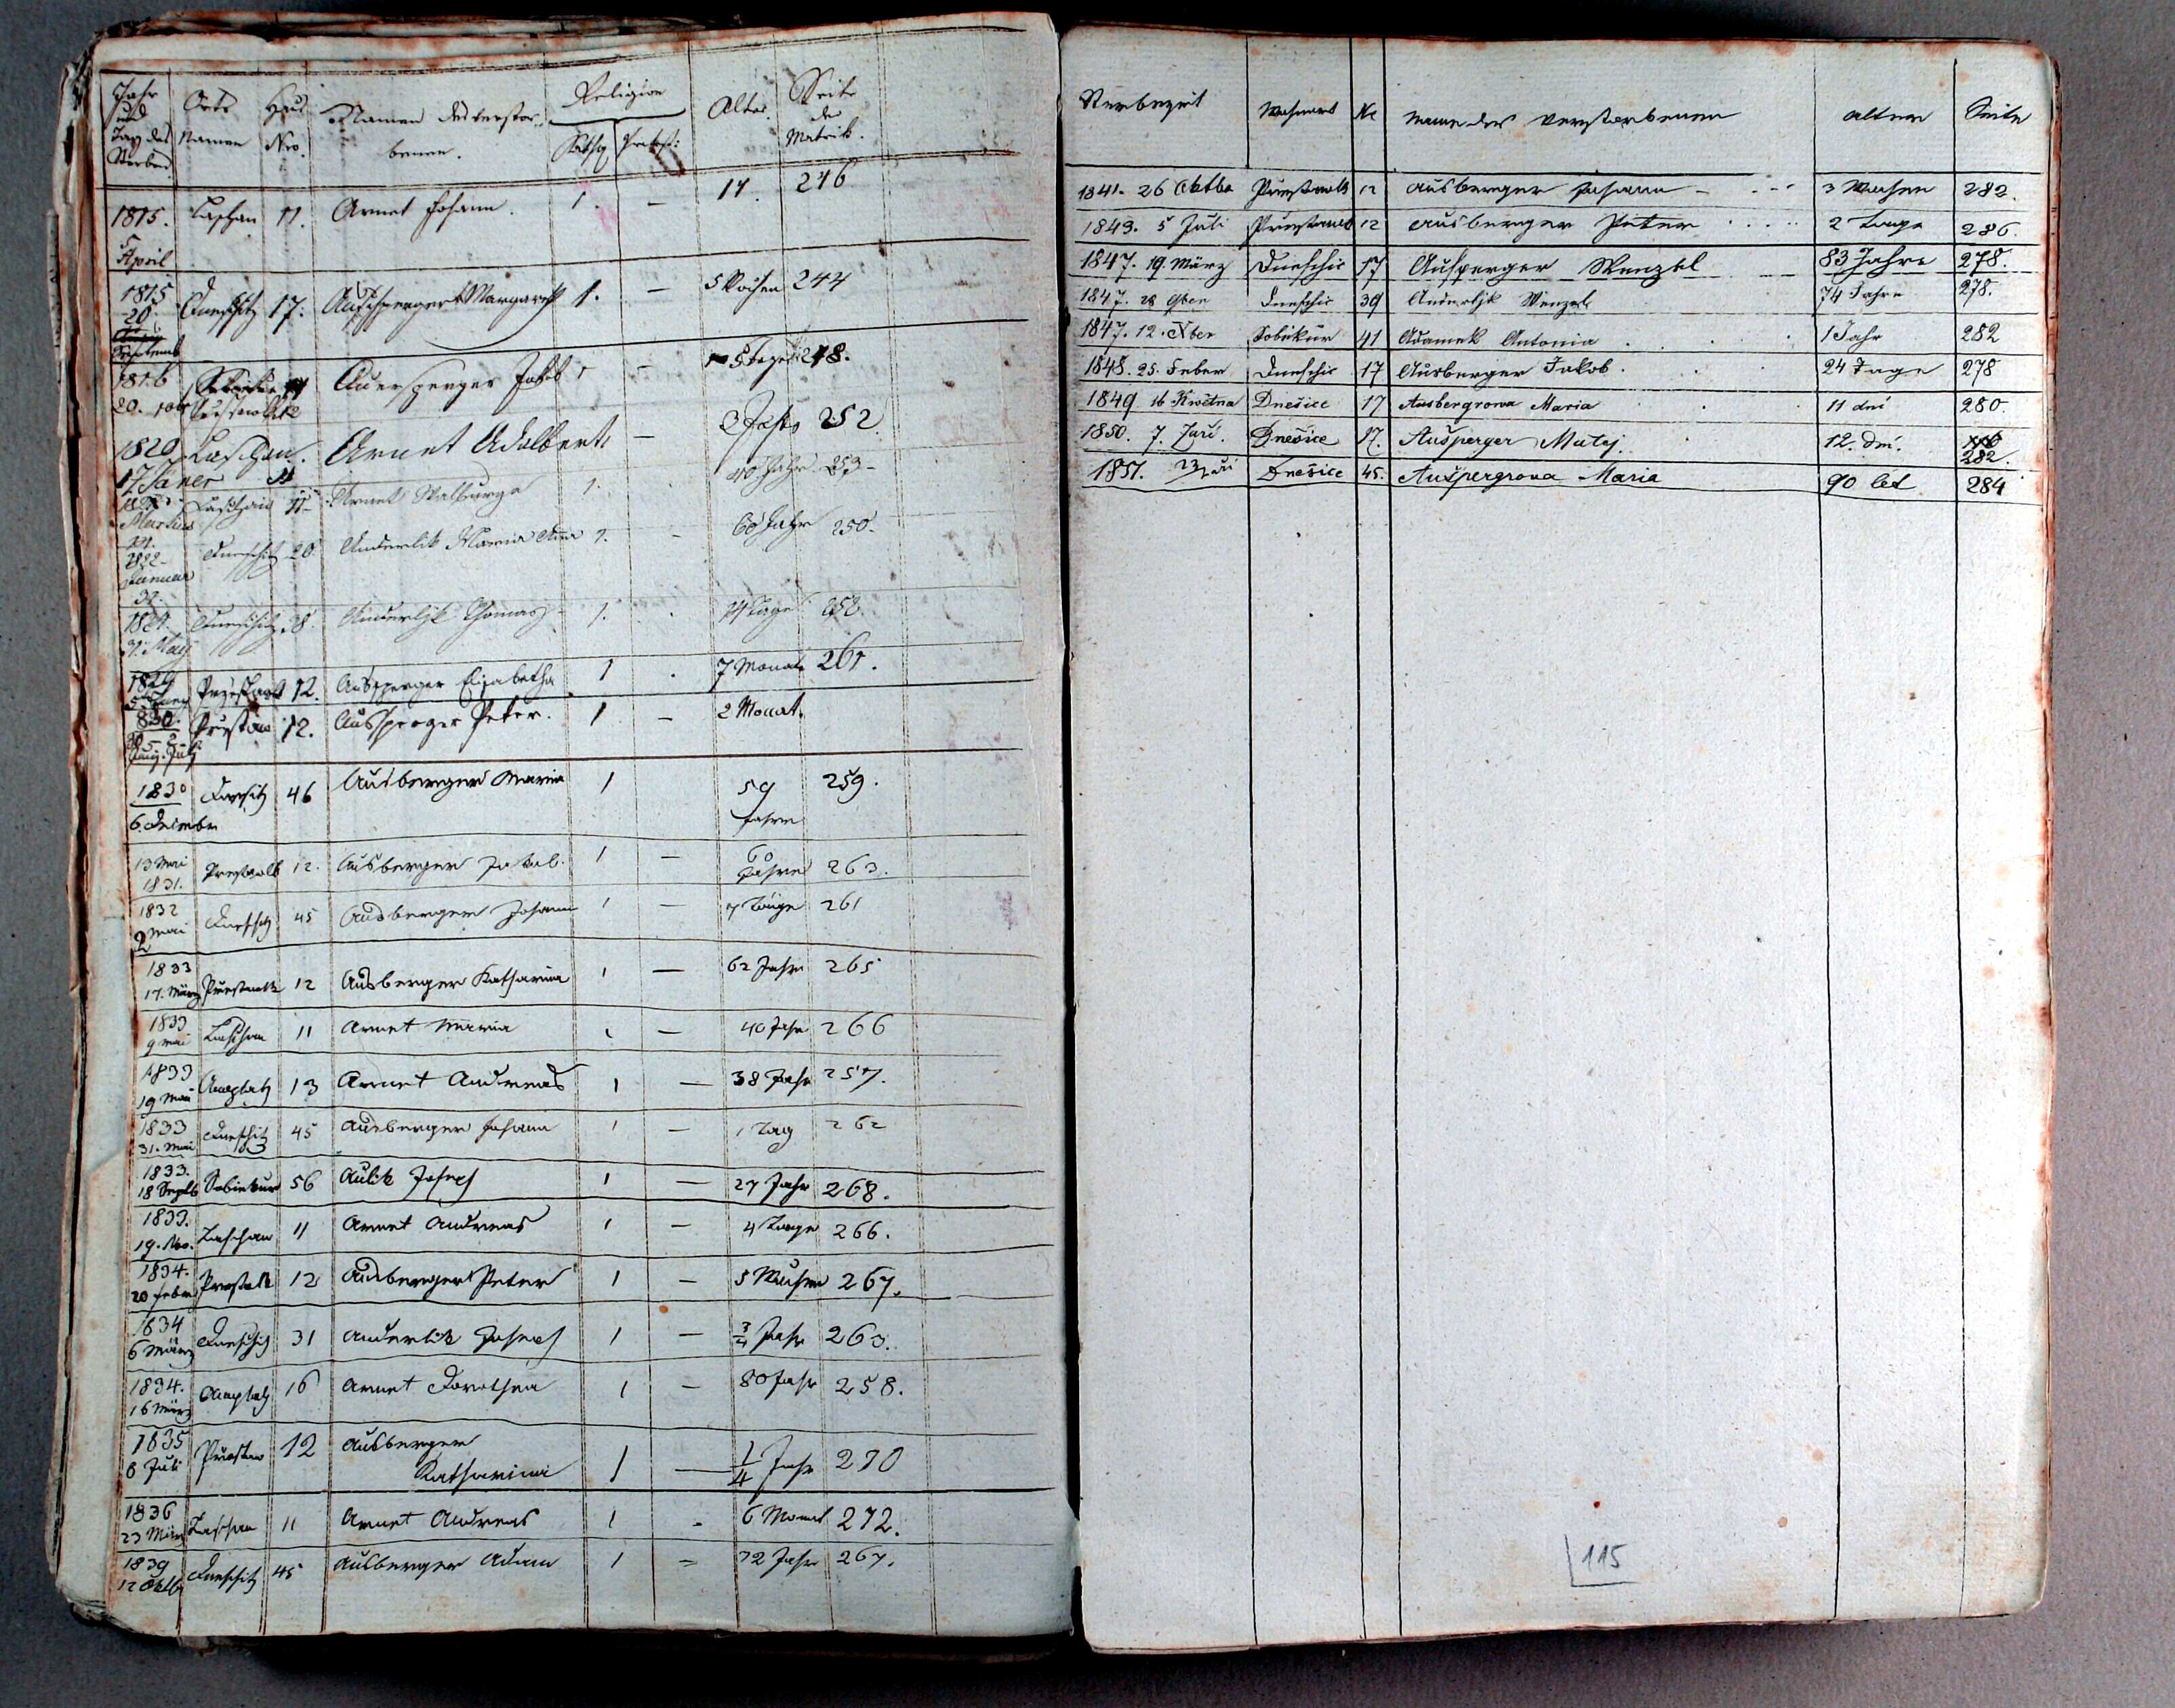 Jahr und Tag des Sterbens Orts Namen Haus Nro. Namen des verstorbenen. Religion Kathol Protest: Alter. Seite der Matrik.
1815. April Laschan 11. Arnet Johann. 1. — 17. 246
1815 20. Septemb Dneschitz 17. Ausperger Margareth 1. — 5 Wochen 244
1816 20. Ausperger Jakob 1 — 248.
1820 17 Jäner Laschan. 11 Arnet Adalbert 1 — 3 Jahr 252
Martius Laschan 11 Arnet Walburga 1. 40 Jahr 253
1822 Januar Dneschitz 20 Anderlik Maria Anna 1. - 60 Jahr 250
May Dneschitz 38. Anderlik Thomas 1. . Tage 252.
1829 Przestawlk 12. Aussperger Elisabetha 1 . 7 Monat 261.
830. July Prestaw 12. Aussperger Peter. 1 — 2 Monat.
1830 6. Decimber Dneschitz 46 Ausberger Maria 1 59 Jahre 259.
13 Mai 1831. Prestawlk 12. Ausberger Jakob. 1 — 60 Jahre 263.
1832 2 Mai Dneschitz 45 Ausberger Johann 1 — 7 Täge 261
1833 17. März Prestawlk 12 Ausberger Katharina 1 — 62 Jahr 265
1833 9 Mai Laschan 11 Arnet Maria 1 — 40 Jahr 266
1833 19 Mai 13 Arnet Andreas 1 — 38 Jahr 257.
1833 31. Mai Dneschitz 45 Ausberger Johann 1 — 1 Tag 262
1833. 18 Septb Sobiekur 56 Aulik Joseph 1 — 27 Jahr 268.
1833. 19. Nov. Laschan 11 Arnet Andreas 1 — 4 Tage 266.
1834. 20 Feber Prestalk 12 Ausberger Peter 1 — 5 Wochen 267.
1834 6 März Dneschitz 31 Anderlik Joseph 1 — 3/4 Jahr 263.
1834. 16 März 16 Arnet Dorothea 1 — 80 Jahr 258.
1835 8 Juli Prestaw 12 Ausberger
Katharina 1 — 1/4 Jahr 270
1836 23 März Laschan 11 Arnet Andreas 1 - 6 Monat 272.
1839 12 Oktb Dneschitz 45 Ausberger Adam 1 = 72 Jahr 267.
Sterbezeit Wohnort Nr Name des Verstorbenen Alter Seite
1841. 26 Oktbr Prestawlk 12 Ausberger Johann 3 Wochen 282.
1843. 5 Juli Prestawlk 12 Ausberger Peter 2 Tage 286.
1847. 19. März Dneschic 17 Ausperger Wenzel 83 Jahre 278.
1847. 28 9ber Dneschic 39 Anderljk Wenzel 74 Jahre 278.
1847. 12. Xber Sobiekur 41 Adamek Antonia 1 Jahr 282
1848. 25. Feber Dneschic 17 Ausberger Jakob 24 Tage 278
1849 16 Května Dnešice 17 Ausbergrowa Maria 11 dní 280.
1850. 7. Září. Dnešice 17. Aušperger Matěj. 12. dní. 282.
1851. Září Dnešice 45. Aušpergrova Maria 90 let 284
115